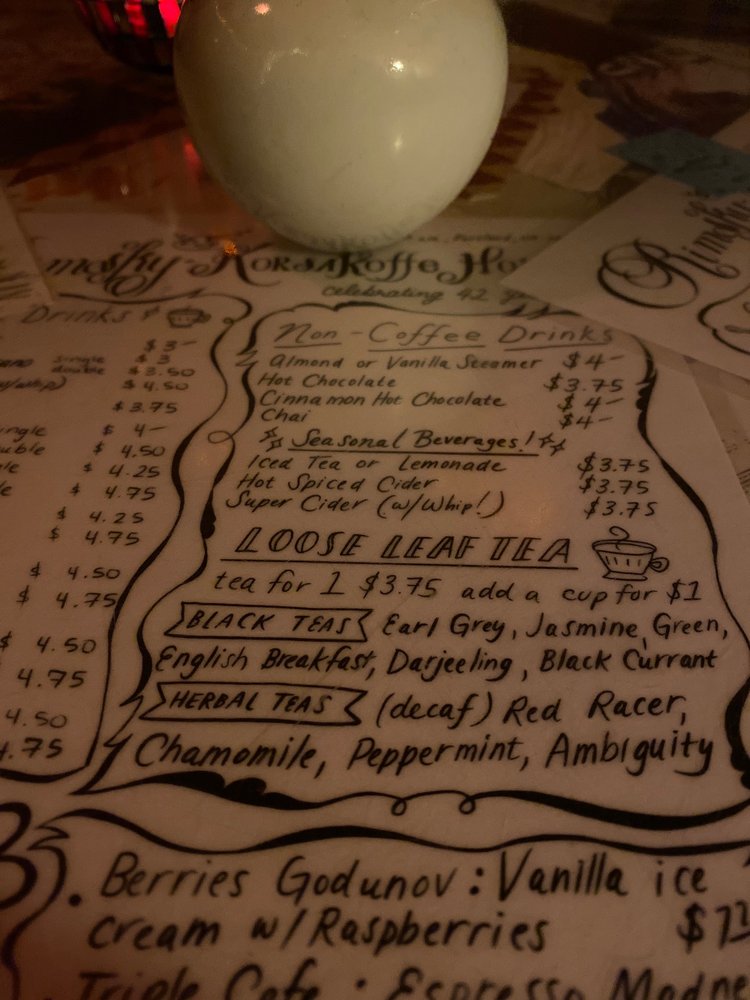 Rimsky
msky-KorsaKoffee Ho
celebrating 42
Drinks
$3-
single $3
double $3.50
w/whip) $4.50
$3.75
ngle $4-
uble $4.50
le $4.25
le $4.75
$4.25
$4.75
$4.50
$4.75
$4.50
4.75
4.50
4.75
Non-Coffee Drinks
Almond or Vanilla Steamer $4-
Hot Chocolate $3.75
Cinnamon Hot Chocolate $4-
Chai $4-
Seasonal Beverages!
Iced Tea or Lemonade $3.75
Hot Spiced Cider $3.75
Super Cider (w/Whip!) $3.75
LOOSE LEAF TEA
tea for 1 $3.75 add a cup for $1
BLACK TEAS Earl Grey, Jasmine, Green,
English Breakfast, Darjeeling, Black Currant
HERBAL TEAS (decaf) Red Racer,
Chamomile, Peppermint, Ambiguity
Berries Godunov: Vanilla ice
cream w/Raspberries
Triple Cafe: Espresso